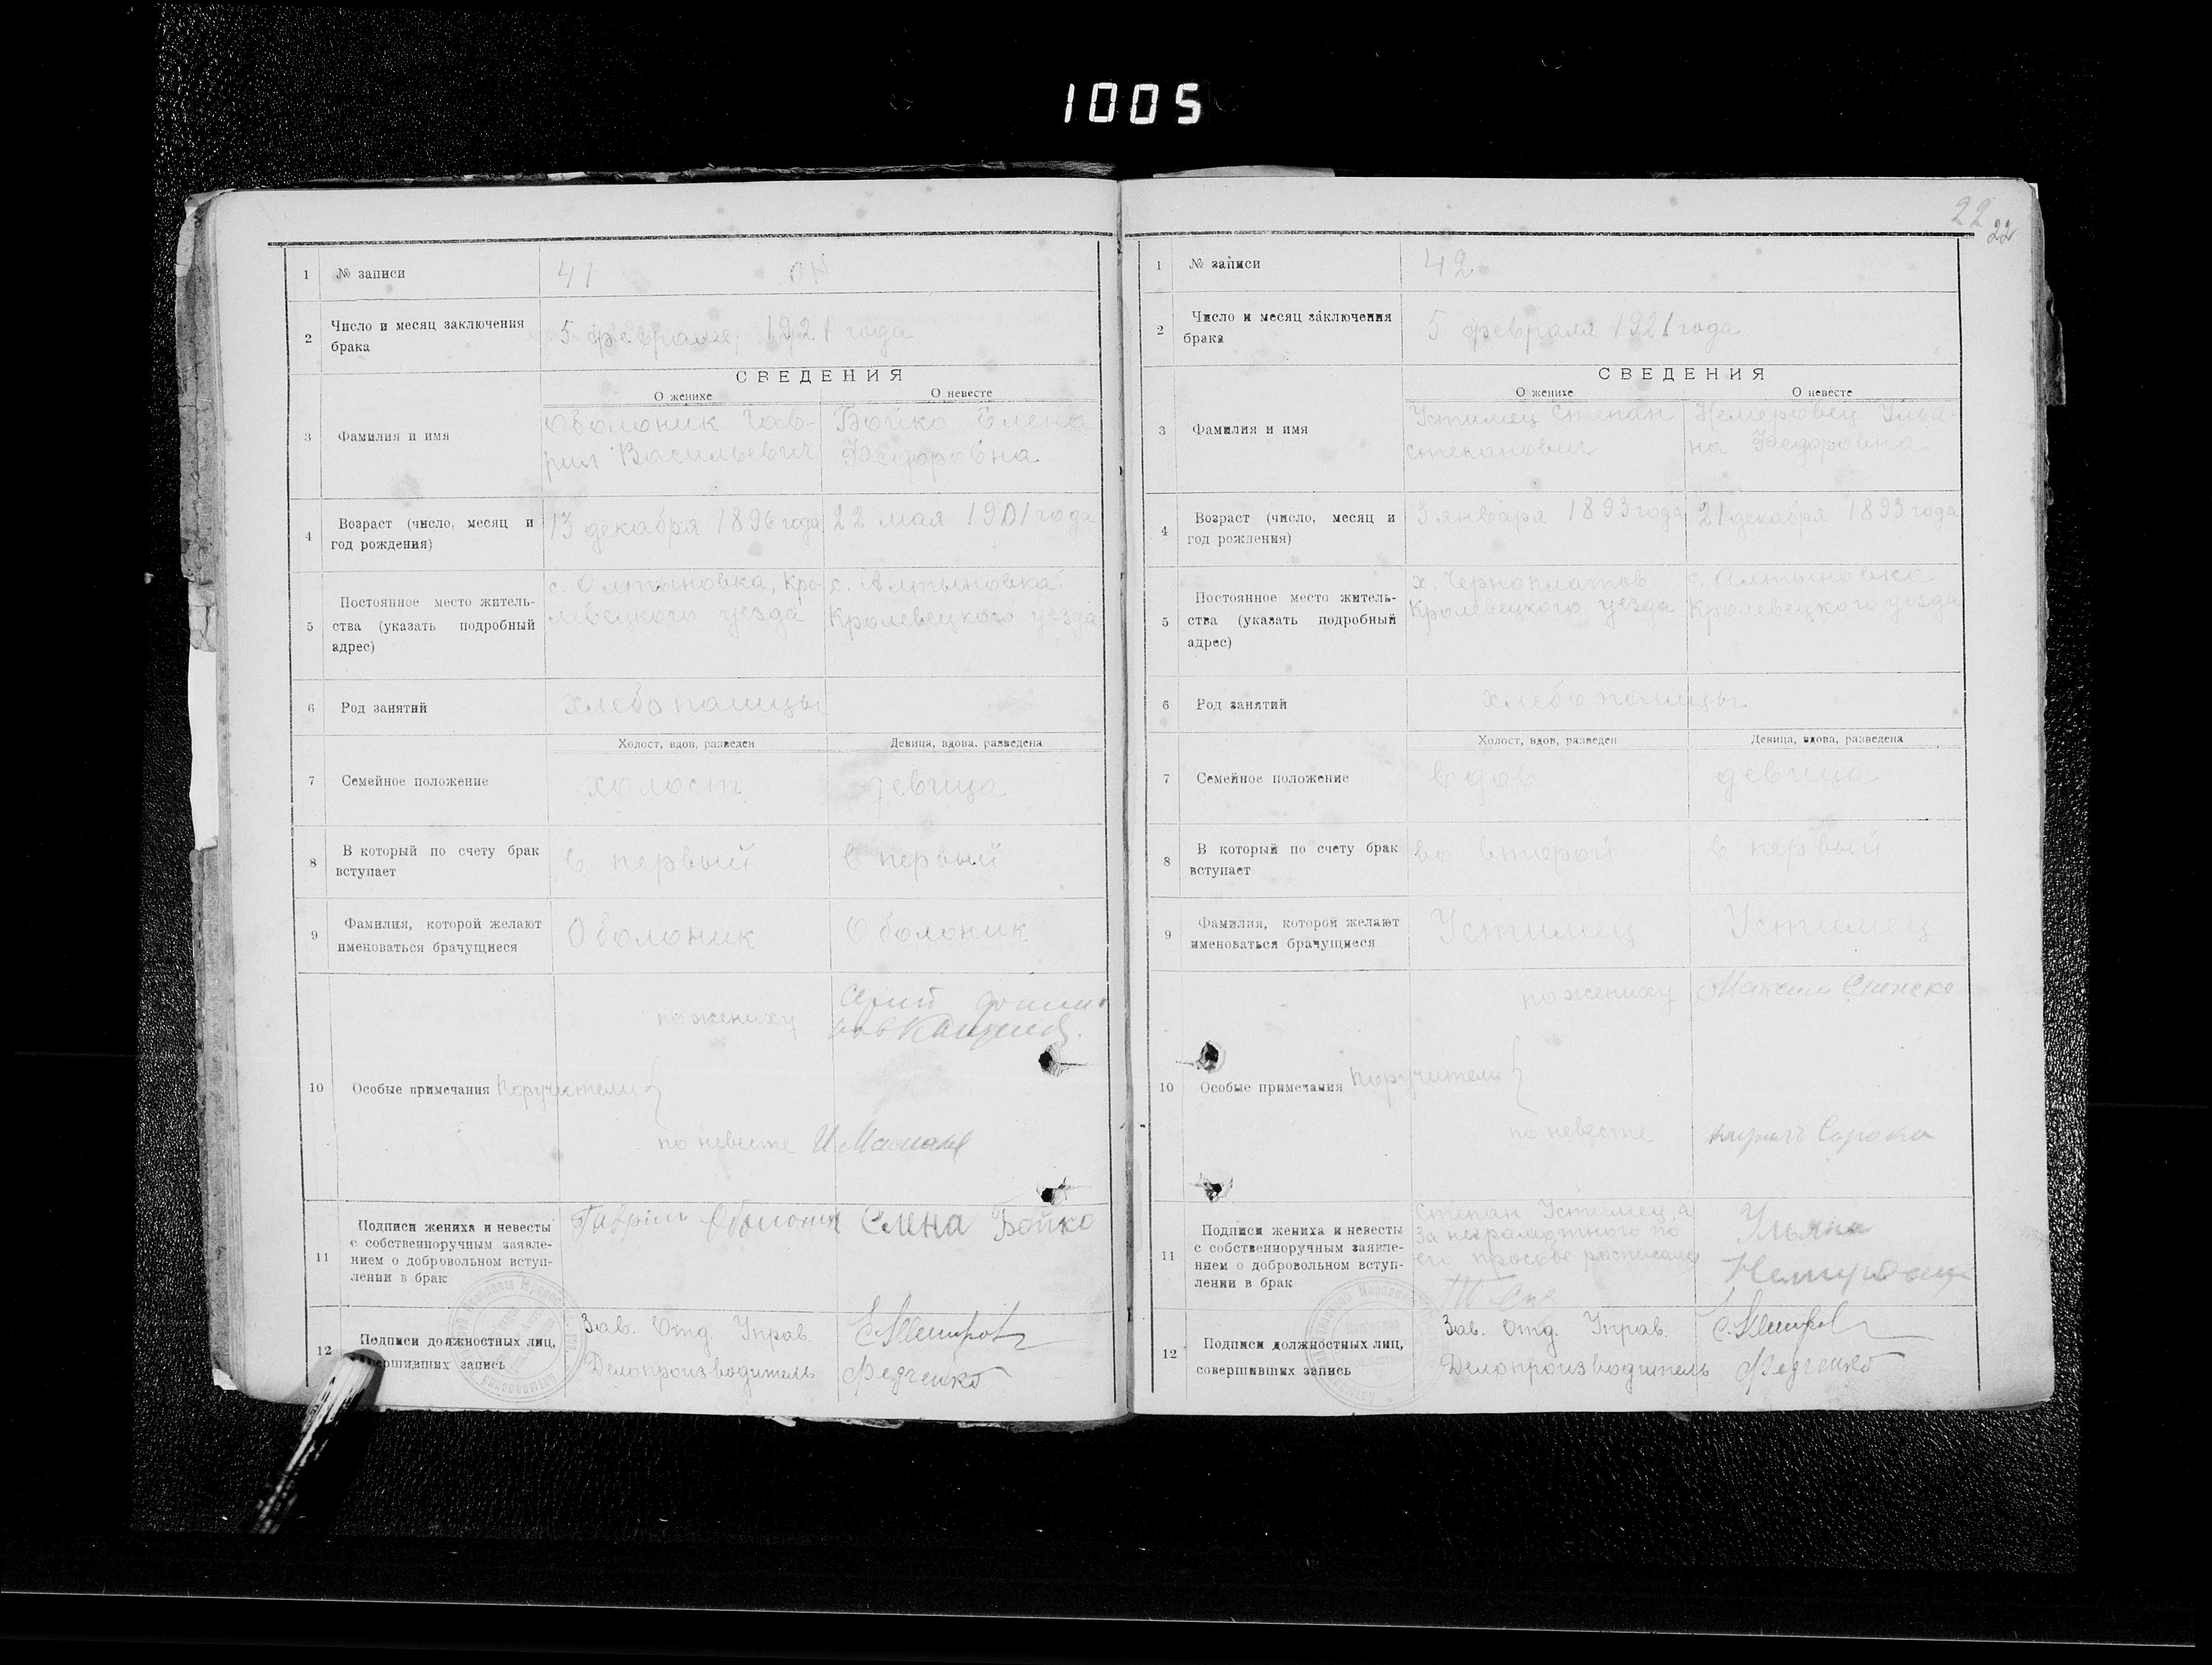 1005
1 № записи 41
2 Число и месяц заключения
брака
5 февраля, 1921 года
СВЕДЕНИЯ
О женихе О невесте
3 Фамилия и имя
Оболоник Гав-
рил Васильевич
Бойко Елена
Федоровна
4 Возраст (число, месяц и
год рождения)
13 декабря 1896 года
22 мая 1901 года
5 Постоянное место житель-
ства (указать подробный
адрес)
с. Олтыновка, Кро-
левецкого уезда
с. Алтыновка
Кролевецкого уезда
6 Род занятий хлебопашцы
Холост, вдов, разведен Девица, вдова. разведена
7 Семейное положение холост девица
8 В который по счету брак
вступает
в первый в первый
9 Фамилия, которой желают
именоваться брачущиеся
Оболоник Оболоник
по жениху
10 Особые примечания Поручители
по невесте
11 Подписи жениха и невесты
с собственноручным заявле-
нием о добровольном вступ-
лении в брак
Гавріил Оболоник Елена Бойко
12 Подписи должностных лиц,
совершивших запись
Зав. Отд. Управ.
Делопроизводитель Федченко
22
22
1 № записи 42
2 Число и месяц заключения
брака
5 февраля 1921 года
СВЕДЕНИЯ
О женихе О невесте
3 Фамилия и имя
Устимец Степан
Степанович
Немеровец Улья-
на Федоровна
4 Возраст (число, месяц и
год рождения)
3 января 1893 года
21 декабря 1893 года
5 Постоянное место житель-
ства (указать подробный
адрес)
х. Черноплатов
Кролевецкого уезда
с. Алтыновка
Кролевецкого уезда
6 Род занятий хлебопашцы
Холост, вдов, разведен Девица, вдова, разведена
7 Семейное положение вдов девица
8 В который по счету брак
вступает
во второй в первый
9 Фамилия, которой желают
именоваться брачущиеся
Устимец Устимец
по жениху Максим
10 Особые примечания Поручители
по невесте Сорока
11 Подписи жениха и невесты
с собственноручным заявле-
нием о добровольном вступ-
лении в брак
Степан Устимец а
за неграмотного по
его просьбе росписался
Ульяна
12 Подписи должностных лиц,
совершивших запись
Зав. Отд. Управ.
Делопроизводитель Федченко